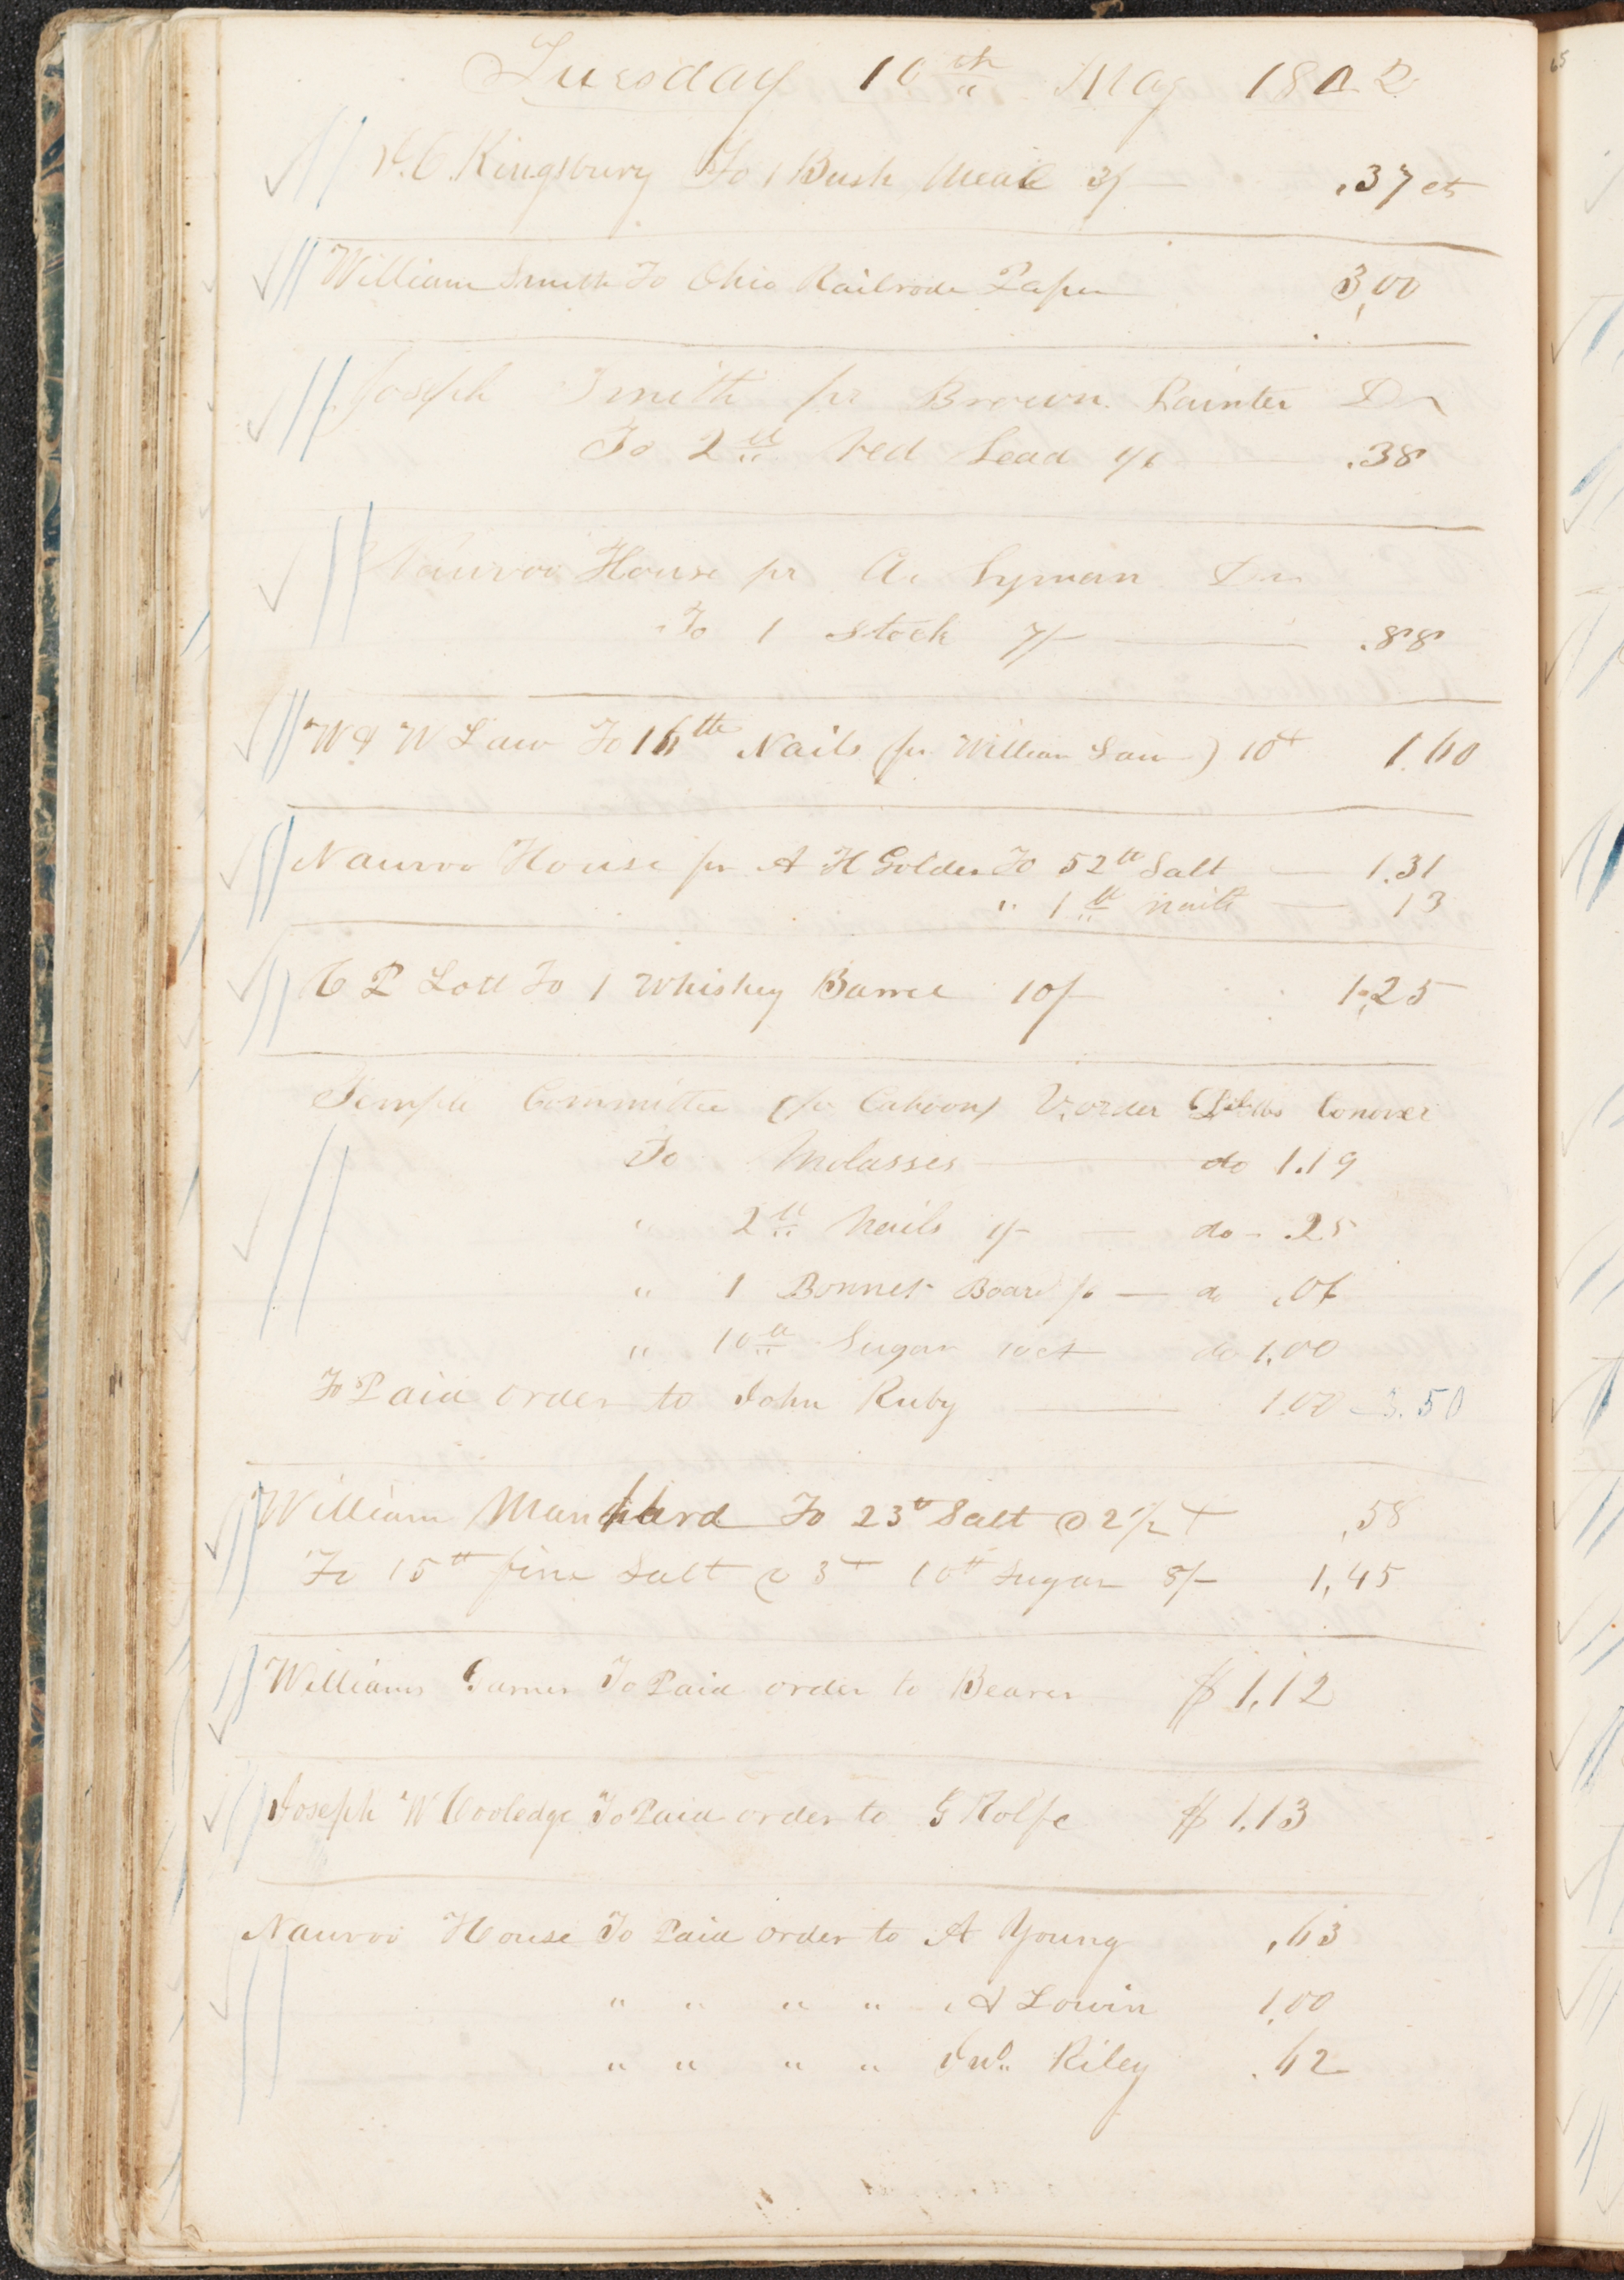 Tuesday 10th May 1842
J. C. Kingsbury To 1 Bush Meal 3/- .37 cts
William Smith To Ohio Railrode Paper 3,00
Joseph Smith pr Brown Painter Dr
To 2 lb Red Lead 1/6 .38
Nauvoo House pr A. Lyman Dr
To 1 Stock 7/- .88
W & W Law To 16 lb Nails (pr William Law) 10ct 1.60
Nauvoo House pr A H Golder To 52 lb Salt 1.31
" 1 lb nails 13
C P Lott To 1 Whiskey Barrel 10/- 1.25
Temple Committee (pr Cahoon) order Conover
To Molasses do 1.19
" 2 lb Nails 1/- do .25
" 1 Bonnet Board /6 do .06
" 10 lb Sugar 10ct do 1.00
To Paid order to John Ruby 1.00 3.50
William To 23 lb Salt @ 2 1/2 ct .58
To 15 lb fine Salt @ 3ct 10 lb Sugar 8/- 1,45
Williams To Paid order to Bearer $ 1.12
Joseph W Cooledge To Paid order to G Rolfe $ 1.13
Nauvoo House To Paid order to A Young .63
" " " " A Lowin 1.00
" " " " Jno. Riley .62
65